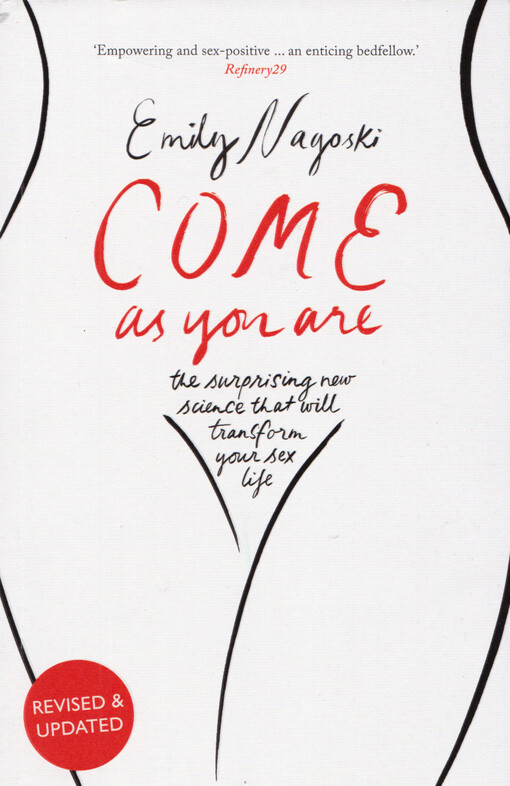 ‘Empowering and sex-positive ... an enticing bedfellow.’
Refinery29
Emily Nagoski
COME
as you are
the surprising new
science that will
transform
your sex
life
REVISED &
UPDATED